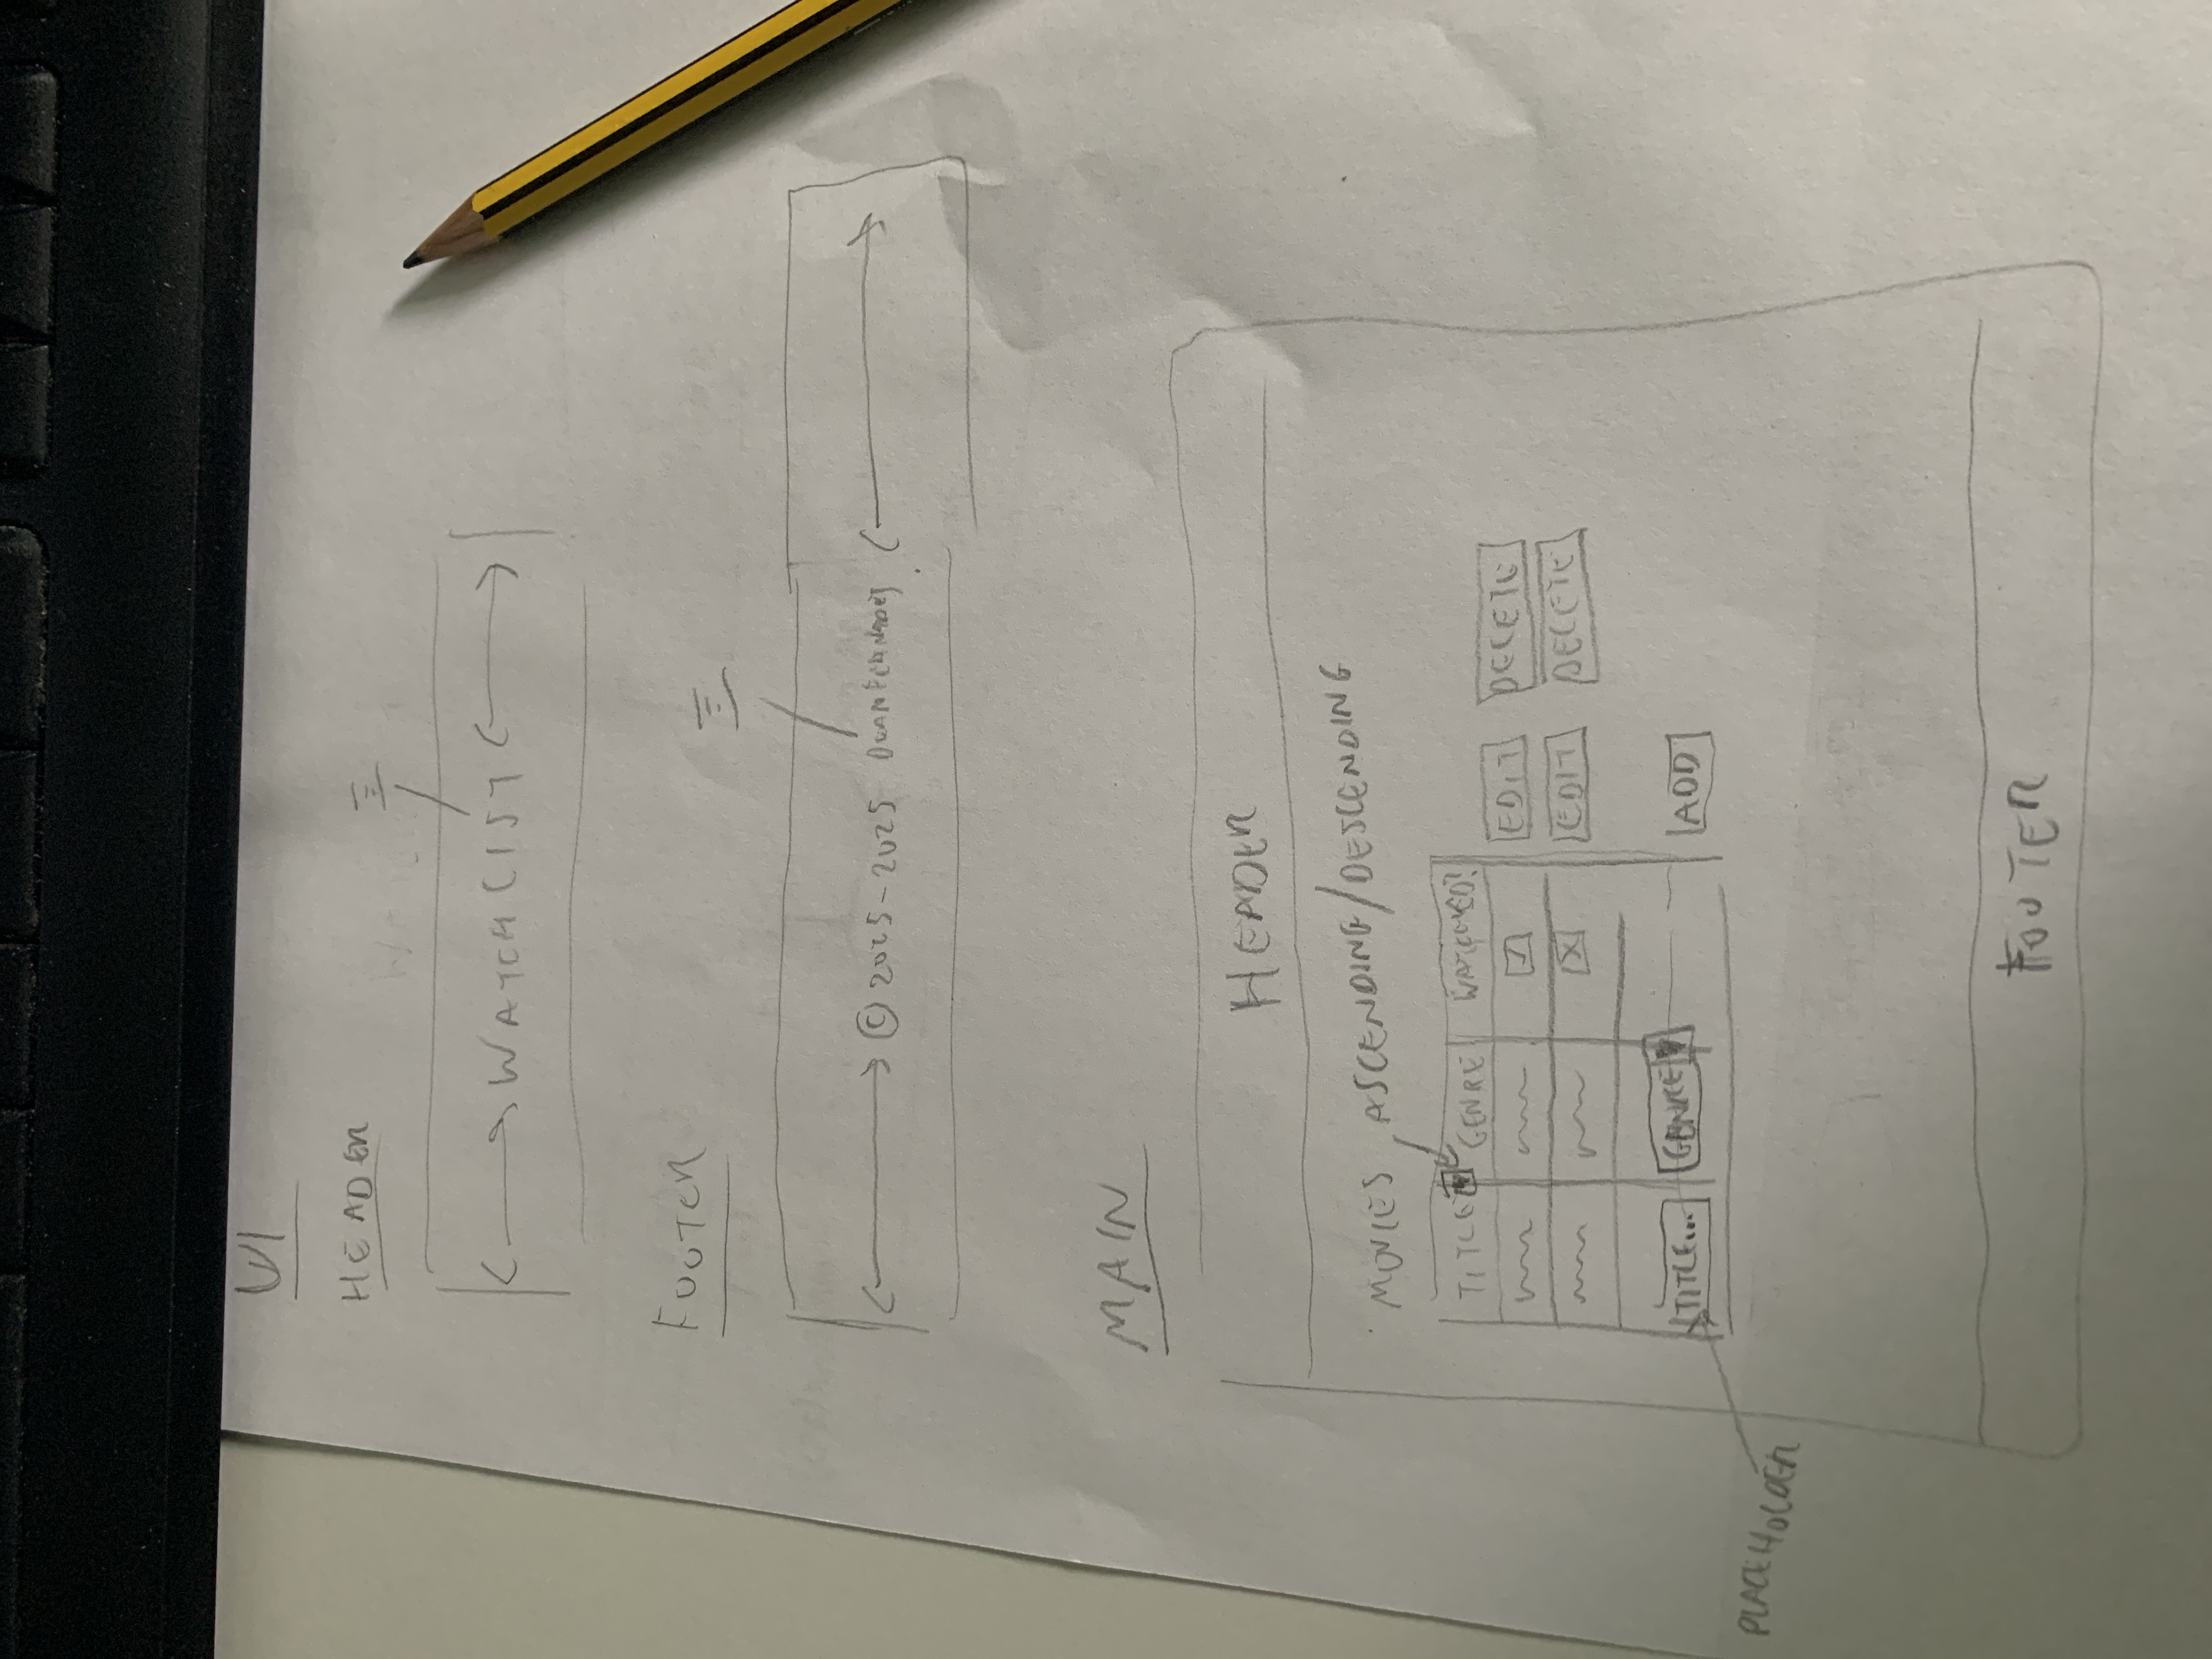 UI
HEADER
WATCHLIST
FOOTER
© 2025-2025
MAIN
HEADER
MOVIES ASCENDING/DESCENDING
TITLE GENRE WATCHED?
EDIT DELETE
EDIT DELETE
TITLE... GENRE ADD
PLACEHOLDER
FOOTER